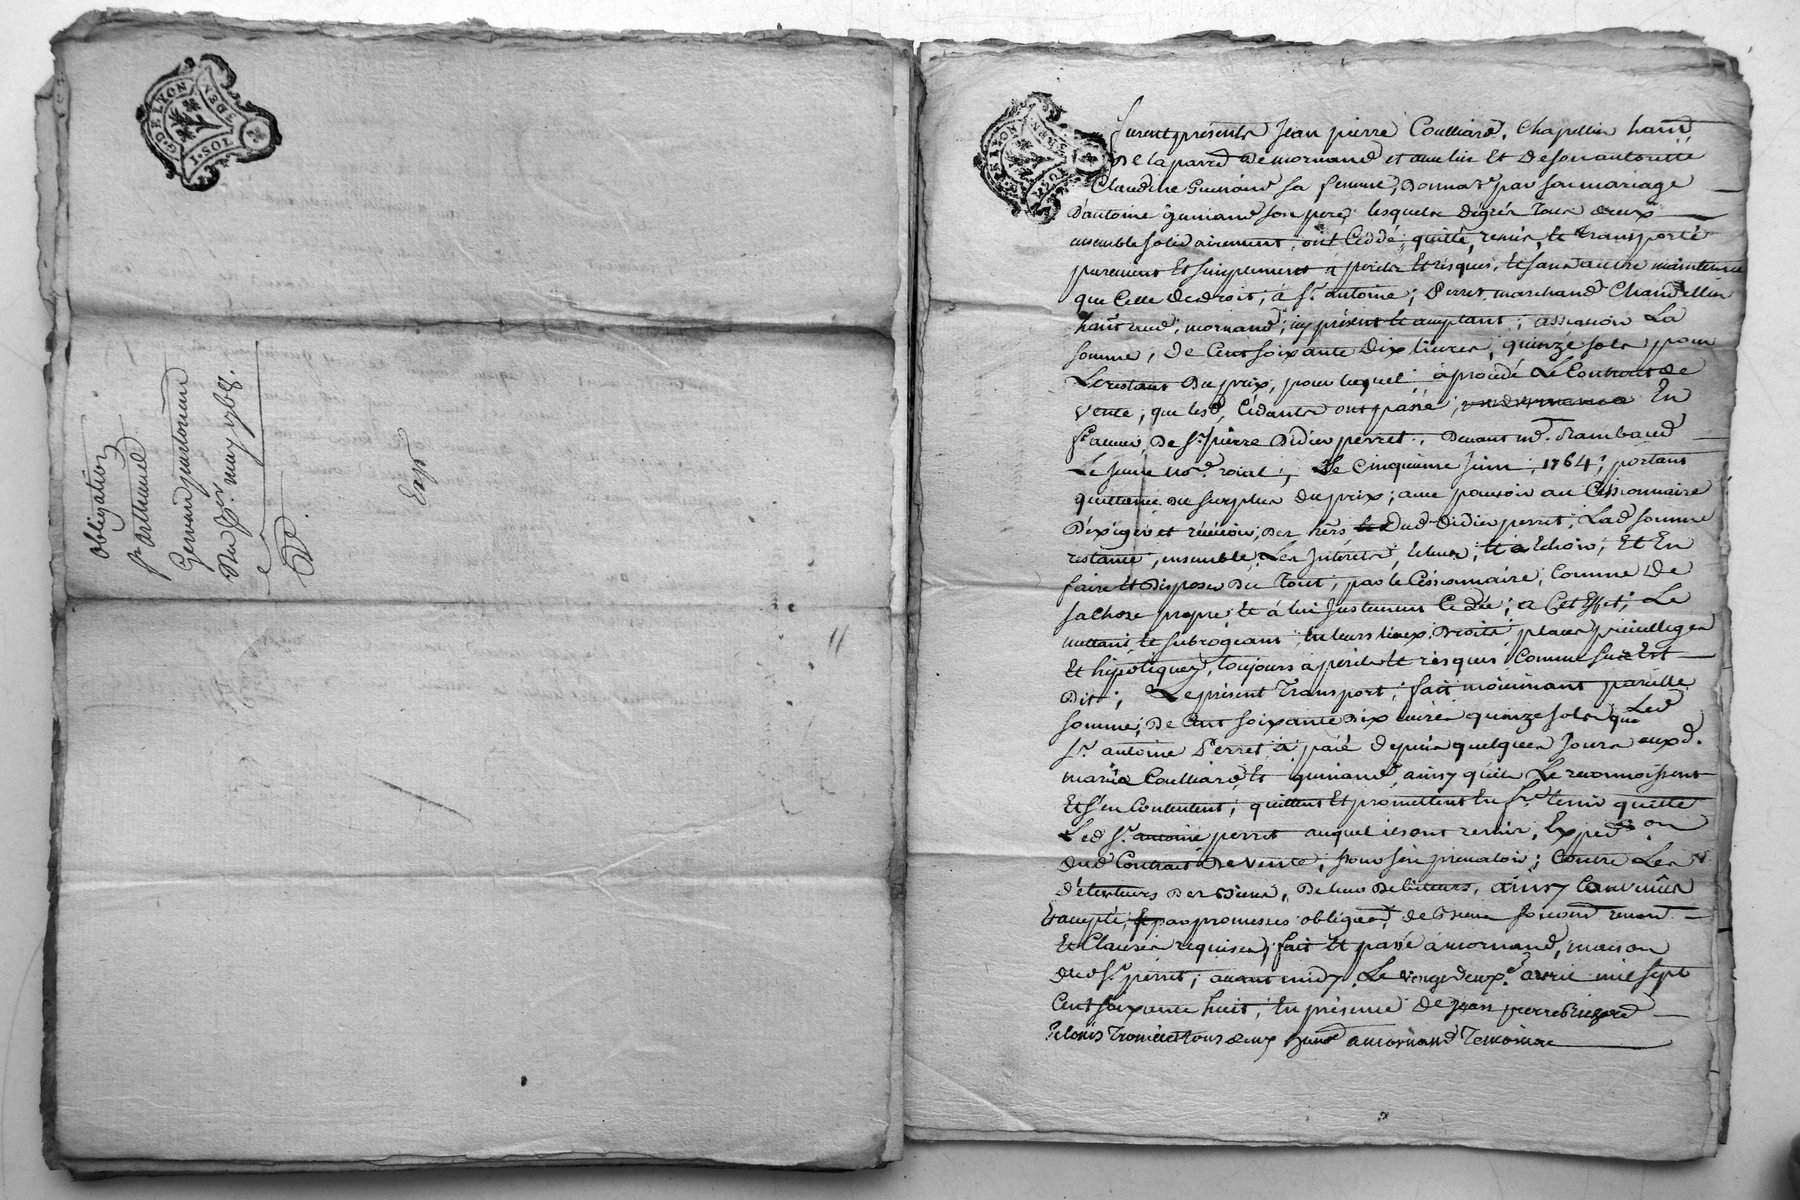 G. DE LYON
I·SOL
DEN
obligation
pr arthaud
Gervais jurdonnier
Du per. may 1768.
Exp
furent présents Jean pierre Coulliard, Chapellier hant
De la parre De mornand et avec lui Et De son autorité
Claudine Guinand sa femme, Donnare par son mariage
D'antoine guinand son pere; lesquels dégrés Tous deux
ensemble solidairement, ont Ceddé, quitté, remis, et transporté
purement Et simplement à perils Et risques, et sans autre maintenue
que Celle de droit, à sr. antoine; Perret marchand Chandellier
hant aud. mornand; icy présent et acceptant; assavoir La
somme, de Cent soixante Dix livres, quinze sols, pour
Le restant du prix, pour lequel à procédé Le Contract de
vente, que lesd. Cédants ont passé, En
faveur, De sr. pierre Didier perret, Devant me. Rambaud
Le Jeune nore. roial, Le Cinquieme Juin, 1764; portant
quittance du surplus du prix; avec pouvoir au Cessionnaire
D'éxiger et recevoir, Des hers. dud Didier perret, Lad somme
restante, ensemble Les Interets, Echeus, et a Echoir, Et En
faire Et Disposer du tout, par le Cessionnaire, Comme De
sa chose propre, et à lui Justement Cedée; a Cet Effet, Le
mettant et subrogeant en leurs lieux, Droits, places, privilleges
Et hipoteques, toujours à perils et risques Comme sus Est
Dit; Le présent Transport, fait moiennant pareille
somme, De Cent soixante Dix livres quinze sols que Led
sr. antoine Perret à paié depuis quelques Jours auxd.
mariés Coulliard, Et guinand, ainsy qu'ils Le reconnoissent
Et s'en Contentent, quittent Et promettent En fre. tenir quitte
Led sr. antoine perret auquel ils ont remis, Expedon.
dud Contract de vente, pour s'en prevaloir, Contre Les
d'étenteurs Des Biens, De leur debiteurs, ainsy Convenu
Et accepté, par promesses obliguaõn, de Biens soumõn renõn
Et Clauses requises, fait Et passé à mornand, maison
dud sr. perret; avant midy, Le vingt deuxe. avril mil sept
Cent soixante huit, En présence De Jean pierre
Et tous deux hants a mornand Temoins